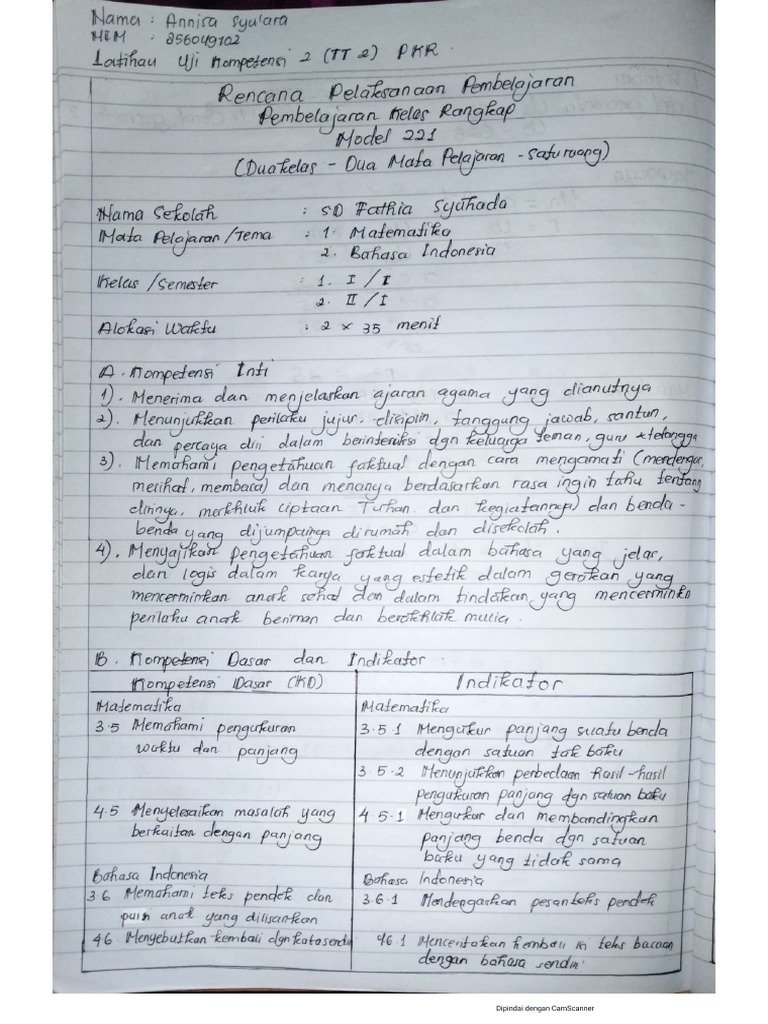 Nama : Annisa Syu'ara
NIM : 856049102
Latihan Uji Kompetensi 2 (TT 2) PKR
Rencana Pelaksanaan Pembelajaran
Pembelajaran Kelas Rangkap
Model 221
(Dua kelas - Dua Mata Pelajaran - Satu ruang)
Nama Sekolah : SD Fathia Syuhada
Mata Pelajaran/Tema : 1. Matematika
2. Bahasa Indonesia
Kelas /Semester : 1. I / I
2. II / I
Alokasi Waktu : 2 x 35 menit
A. Kompetensi Inti
1). Menerima dan menjelaskan ajaran agama yang dianutnya
2). Menunjukkan perilaku jujur, disiplin, tanggung jawab, santun,
dan percaya diri dalam berinteriksi dgn keluarga teman, guru + tetangga
3). Memahami pengetahuan faktual dengan cara mengamati (mendengar,
melihat, membaca) dan menanya berdasarkan rasa ingin tahu tentang
dirinya, makhluk ciptaan Tuhan dan kegiatannya) dan benda-
benda yang dijumpainya dirumah dan disekolah.
4). Menyajikan pengetahuan faktual dalam bahasa yang jelas,
dan logis dalam karya yang estetik dalam gerakan yang
mencerminkan anak sehat dan dalam tindakan yang mencermink
perilaku anak beriman dan berakhlak mulia.
B. Kompetensi Dasar dan Indikator
Kompetensi Dasar (KD)
Matematika
3.5 Memahami pengukuran
waktu dan panjang
4.5 Menyelesaikan masalah yang
berkaitan dengan panjang
Bahasa Indonesia
3.6 Memahami teks pendek dan
puisi anak yang dilisankan
4.6 Menyebutkan kembali dgn kata sendiri
Indikator
Matematika
3.5.1 Mengukur panjang suatu benda
dengan satuan tak baku
3.5.2 Menunjukkan perbedaan hasil-hasil
pengukuran panjang dgn satuan baku
4.5.1 Mengukur dan membandingkan
panjang benda dgn satuan
baku yang tidak sama
Bahasa Indonesia
3.6.1 Mendengarkan pesan teks pendek
4.6.1 Mencentakan kembali isi teks bacaan
dengan bahasa sendiri
Dipindai dengan CamScanner